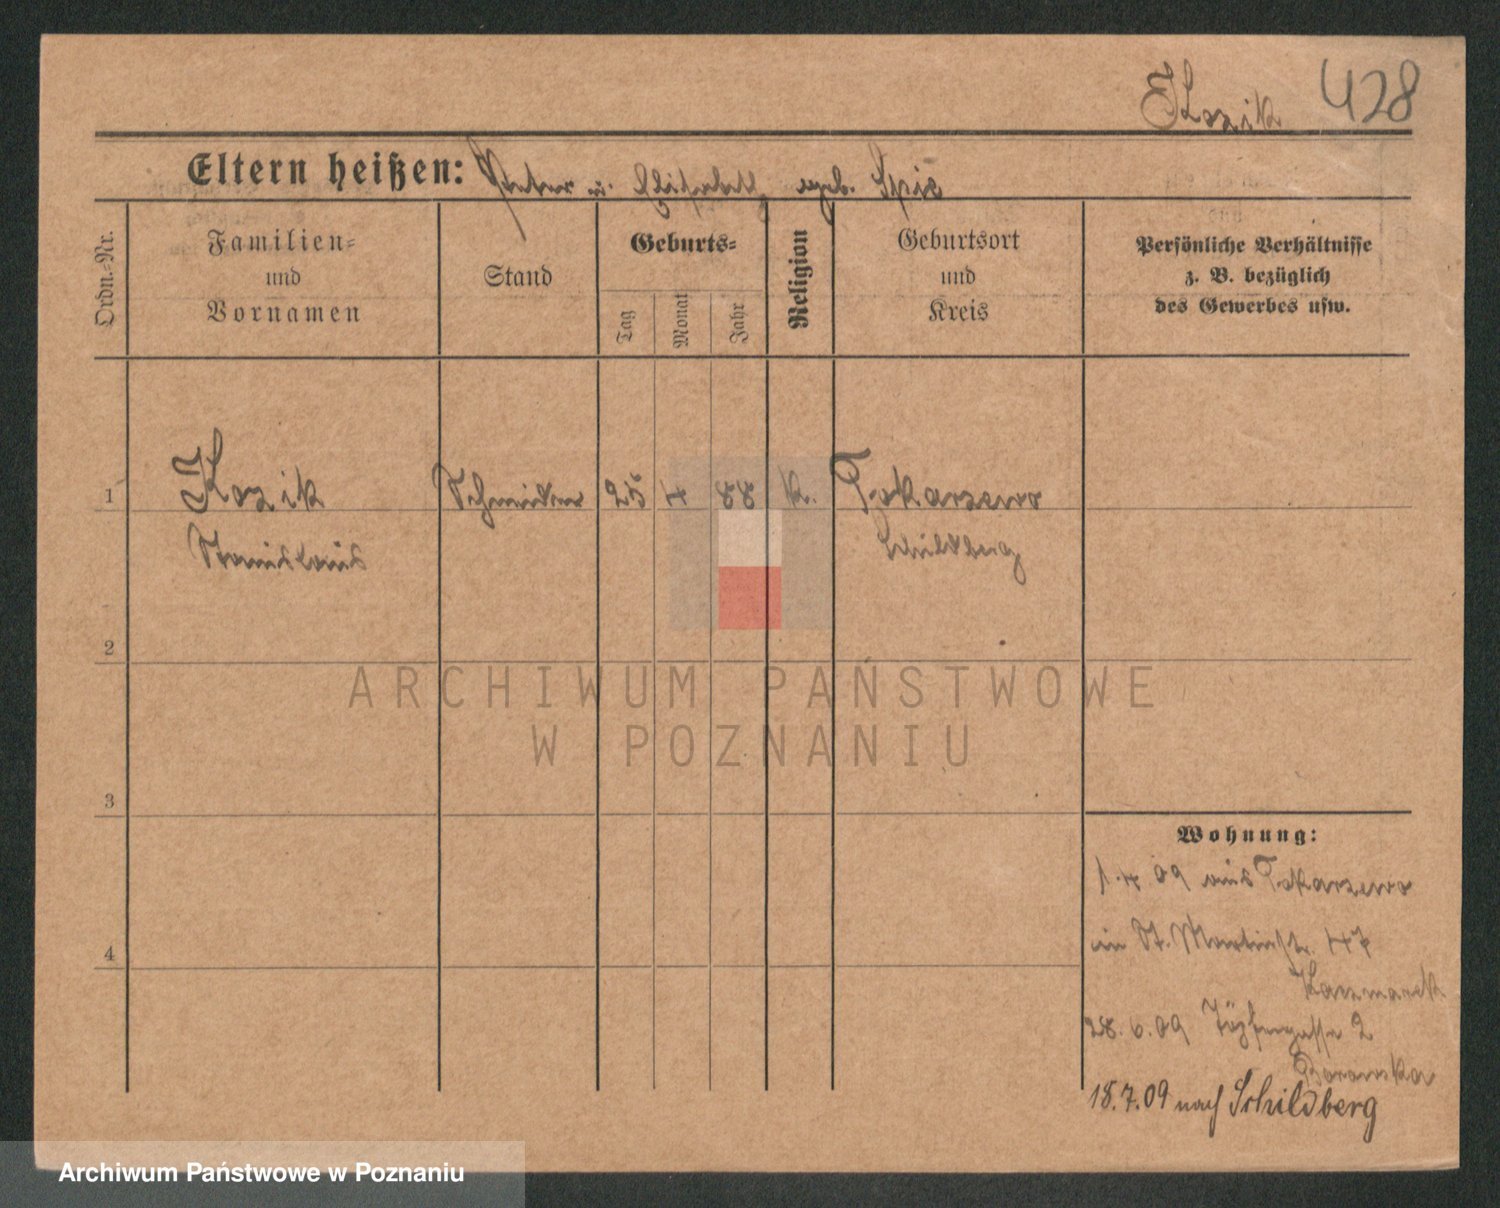 Kozik 428
Eltern heißen: Peter u. Elisabeth geb. Spis
Ordn.-Nr.
Familien-
und
Vornamen
Stand
Geburts-
Tag
Monat
Jahr
Religion
Geburtsort
und
Kreis
Persönliche Verhältnisse
z. B. bezüglich
des Gewerbes usw.
1 Kozik Schneider 25 4 88 k. Tokarzewo
Stanislaus Schildberg
2
ARCHIWUM PAŃSTWOWE
W POZNANIU
3
Wohnung:
1.4.09 aus Tokarzewo
in St. Martinstr. 47
Kaczmarek
28.6.09 Töpfergasse 2
Borowska
18.7.09 nach Schildberg
4
Archiwum Państwowe w Poznaniu